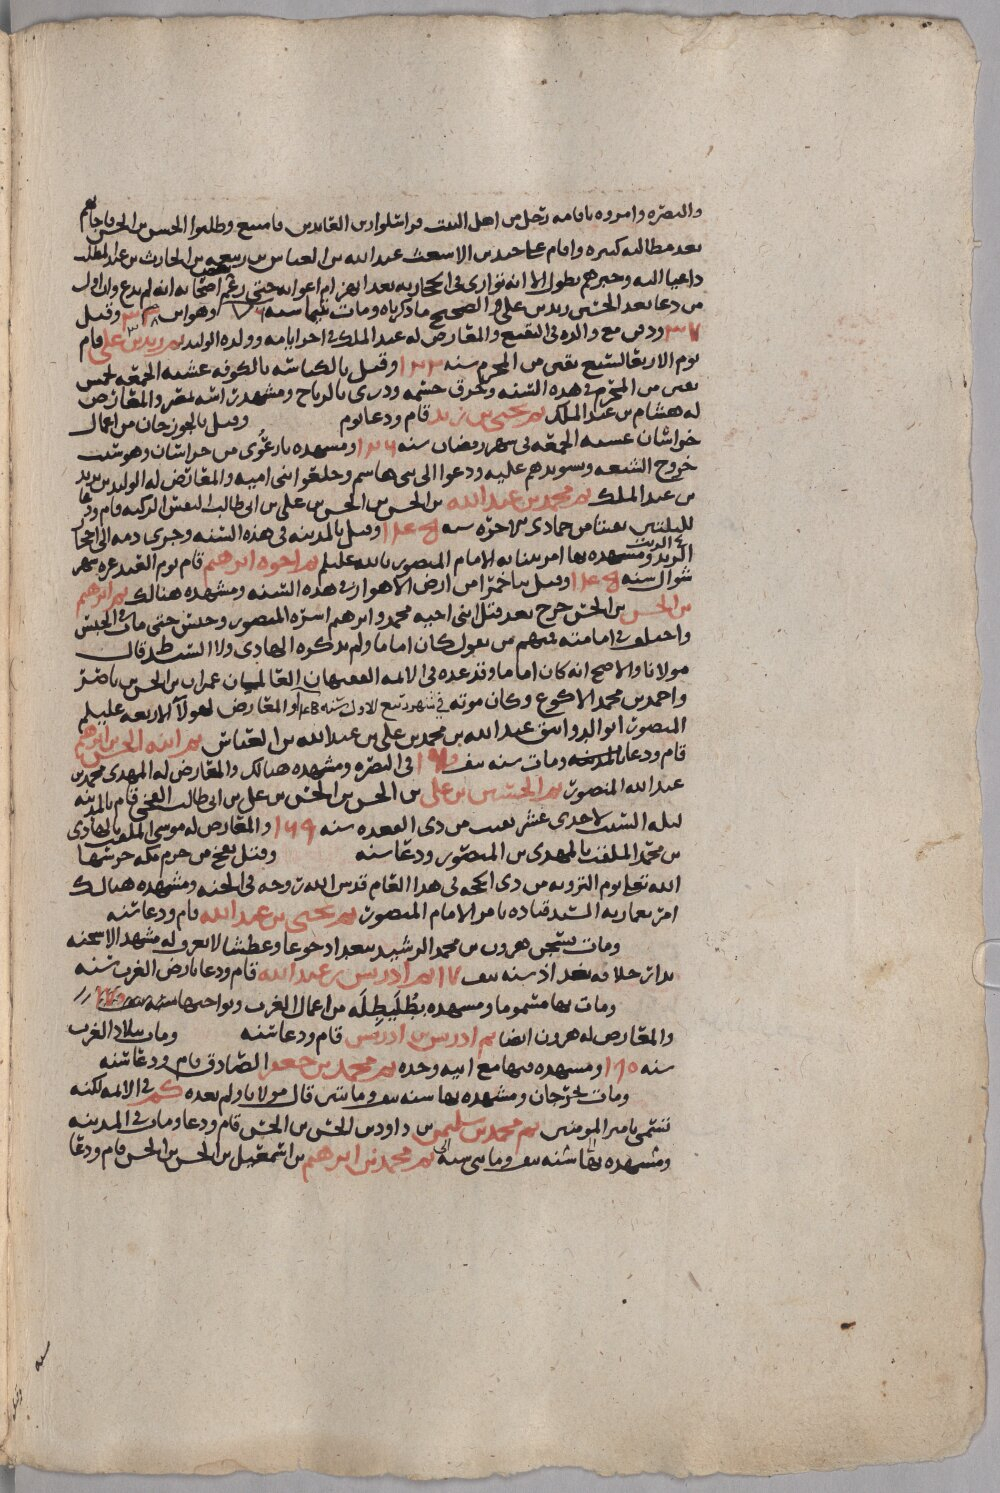 والبصره وامروه باقامه رجل من اهل البيت فراسلوا زين العابدين فامتنع وطلبوا الحسن بن الحسن فاجابهم
بعد مطالبه كبيره وقام على حربه الاشعث عبد الله بن العباس بن ربيعه بن الحارث بن عبد المطلب
داعيا اليه وخبرهم يطول الا انه توارى في الحجاز به بعد انهزام اعوانه حتى رعم بعض اصحابه انه لم يدع وان اول
من دعا بعد الحسين زيد بن علي والصحيح ما ذكرناه ومات سنه وهو ابن ٣٨ وقيل
٣٧ ودفن مع والده في البقيع والمعارض له عبد الملك في اخر ايامه وولده الوليد ثم زيد بن علي قام
يوم الاربعا لسبع بقين من المحرم سنه ١٢٢ وقتل بالكناسه بالكوفه عشيه الجمعه لخمس
بقين من المحرم في هذه السنه وحرق جسمه وذري بالرياح ومشهد راسه بمصر والمعارض
له هشام بن عبد الملك ثم يحيى بن زيد قام ودعا يوم وقتل بالجوزجان من اعمال
خراسان عشيه الجمعه في شهر رمضان سنه ١٢٦ ومشهده بارغوى من خراسان وهو سبب
خروج الشيعه وتسويدهم عليه ودعوا الى بني هاشم وخلعوا بني اميه والمعارض له الوليد بن يزيد
بن عبد الملك ثم محمد بن عبد الله بن الحسن بن الحسن بن علي بن ابي طالب النفس الزكيه قام ودعا
لليلتين بقيتا من جمادى الاخره سنه ١٤٥ وقتل بالمدينه في هذه السنه وجرى دمه الى احجار
الزيت ومشهده بها امر ببنايه الامام المنصور بالله عليلم ثم اخوه ابرهيم قام يوم الفيد غره شهر
شوال سنه ١٤٥ وقتل بباخمرا من ارض الاهواز في هذه السنه ومشهده هنالك ثم ابرهيم
بن الحسن بن الحسن خرج بعد قتل ابني اخيه محمد وابرهيم اسره المنصور وحبس حتى مات في الحبس
واختلف في امامته فمنهم من يقول كان اماما ولم يذكره الهادي ولا السيد ط قال
مولانا والاصح انه كان اماما وقد عده في الائمه الفقيهان العالمان عمران بن الحسن بن ناصر
واحمد بن محمد الاكوع وكان موته في شهر ربيع الاول سنه والمعارض لهولا الاربعه عليهلم
المنصور ابو الدوانيق عبد الله بن محمد بن علي بن عبد الله بن العباس ثم ابنه الحسن بن ابرهيم
قام ودعا بالمدينه ومات سنه نيف في البصره ومشهده هنالك والمعارض له المهدي محمد بن
عبد الله المنصور ثم الحسين بن علي بن الحسن بن الحسن بن علي بن ابي طالب الفخي قام بالمدينه
ليله السبت لاحدى عشر بقيت من ذي القعده سنه ١٦٩ والمعارض له موسى الملقب بالهادي
بن محمد الملقب بالمهدي بن المنصور ودعا سنه وقتل بفخ من حرم مكه حرسها
الله تعلى يوم الترويه من ذي الحجه في هذا العام قدس الله روحه في الجنه ومشهده هنالك
امر بعمارته السيد قتاده بامر الامام المنصور ثم يحيى بن عبد الله قام ودعا سنه
ومات بسجن هرون بن محمد الرشيد ببغداد جوعا وعطشا لا يعرف له مشهد الا سجنه
بدار خلافه بغداذ سنه نيف ١٧ ثم ادريس بن عبد الله قام ودعا بارض الغرب سنه
ومات بها مسموما ومشهده بطُلَيطِلَه من اعمال الغرب ونواحيها سنه
والمعارض له هرون ايضا ثم ادريس بن ادريس قام ودعا سنه ومات ببلاد الغرب
سنه ومشهده فيها مع ابيه وحده ثم محمد بن جعفر الصادق قام ودعا سنه
ومات بجرجان ومشهده بها سنه نيف وماتين قال مولانا ولم يعده كثير في الائمه لكنه
تسمى بامير المومنين ثم محمد بن سليمن بن داود بن الحسن بن الحسن قام ودعا ومات في المدينه
ومشهده بها سنه نيف ومايتي سنه ثم محمد بن ابرهيم بن اسمعيل بن الحسن بن الحسن قام ودعا